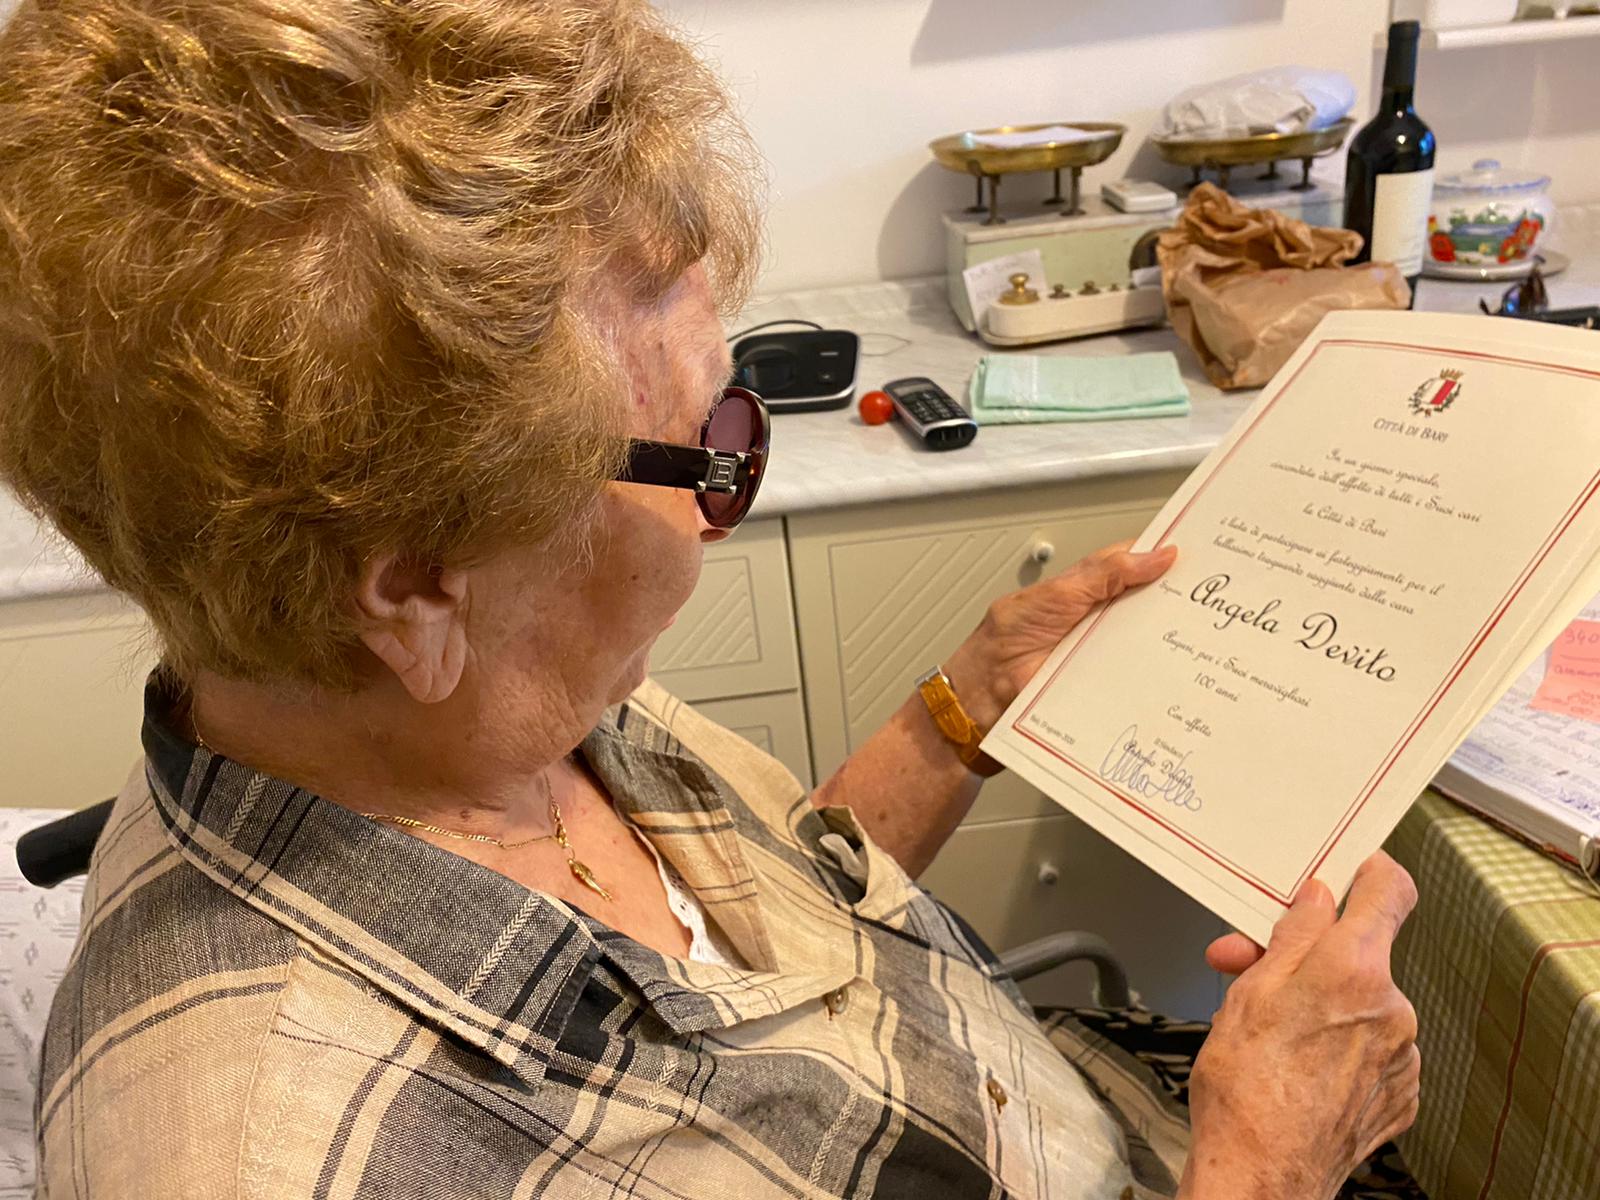 CITTÀ DI BARI
In un giorno speciale,
circondata dall'affetto di tutti i Suoi cari
la Città di Bari
è lieta di partecipare ai festeggiamenti per il
bellissimo traguardo raggiunto dalla cara
Signora Angela Devito
Auguri, per i Suoi meravigliosi
100 anni
Con affetto
Il Sindaco
Antonio Decaro
Bari, 19 agosto 2020
B
340